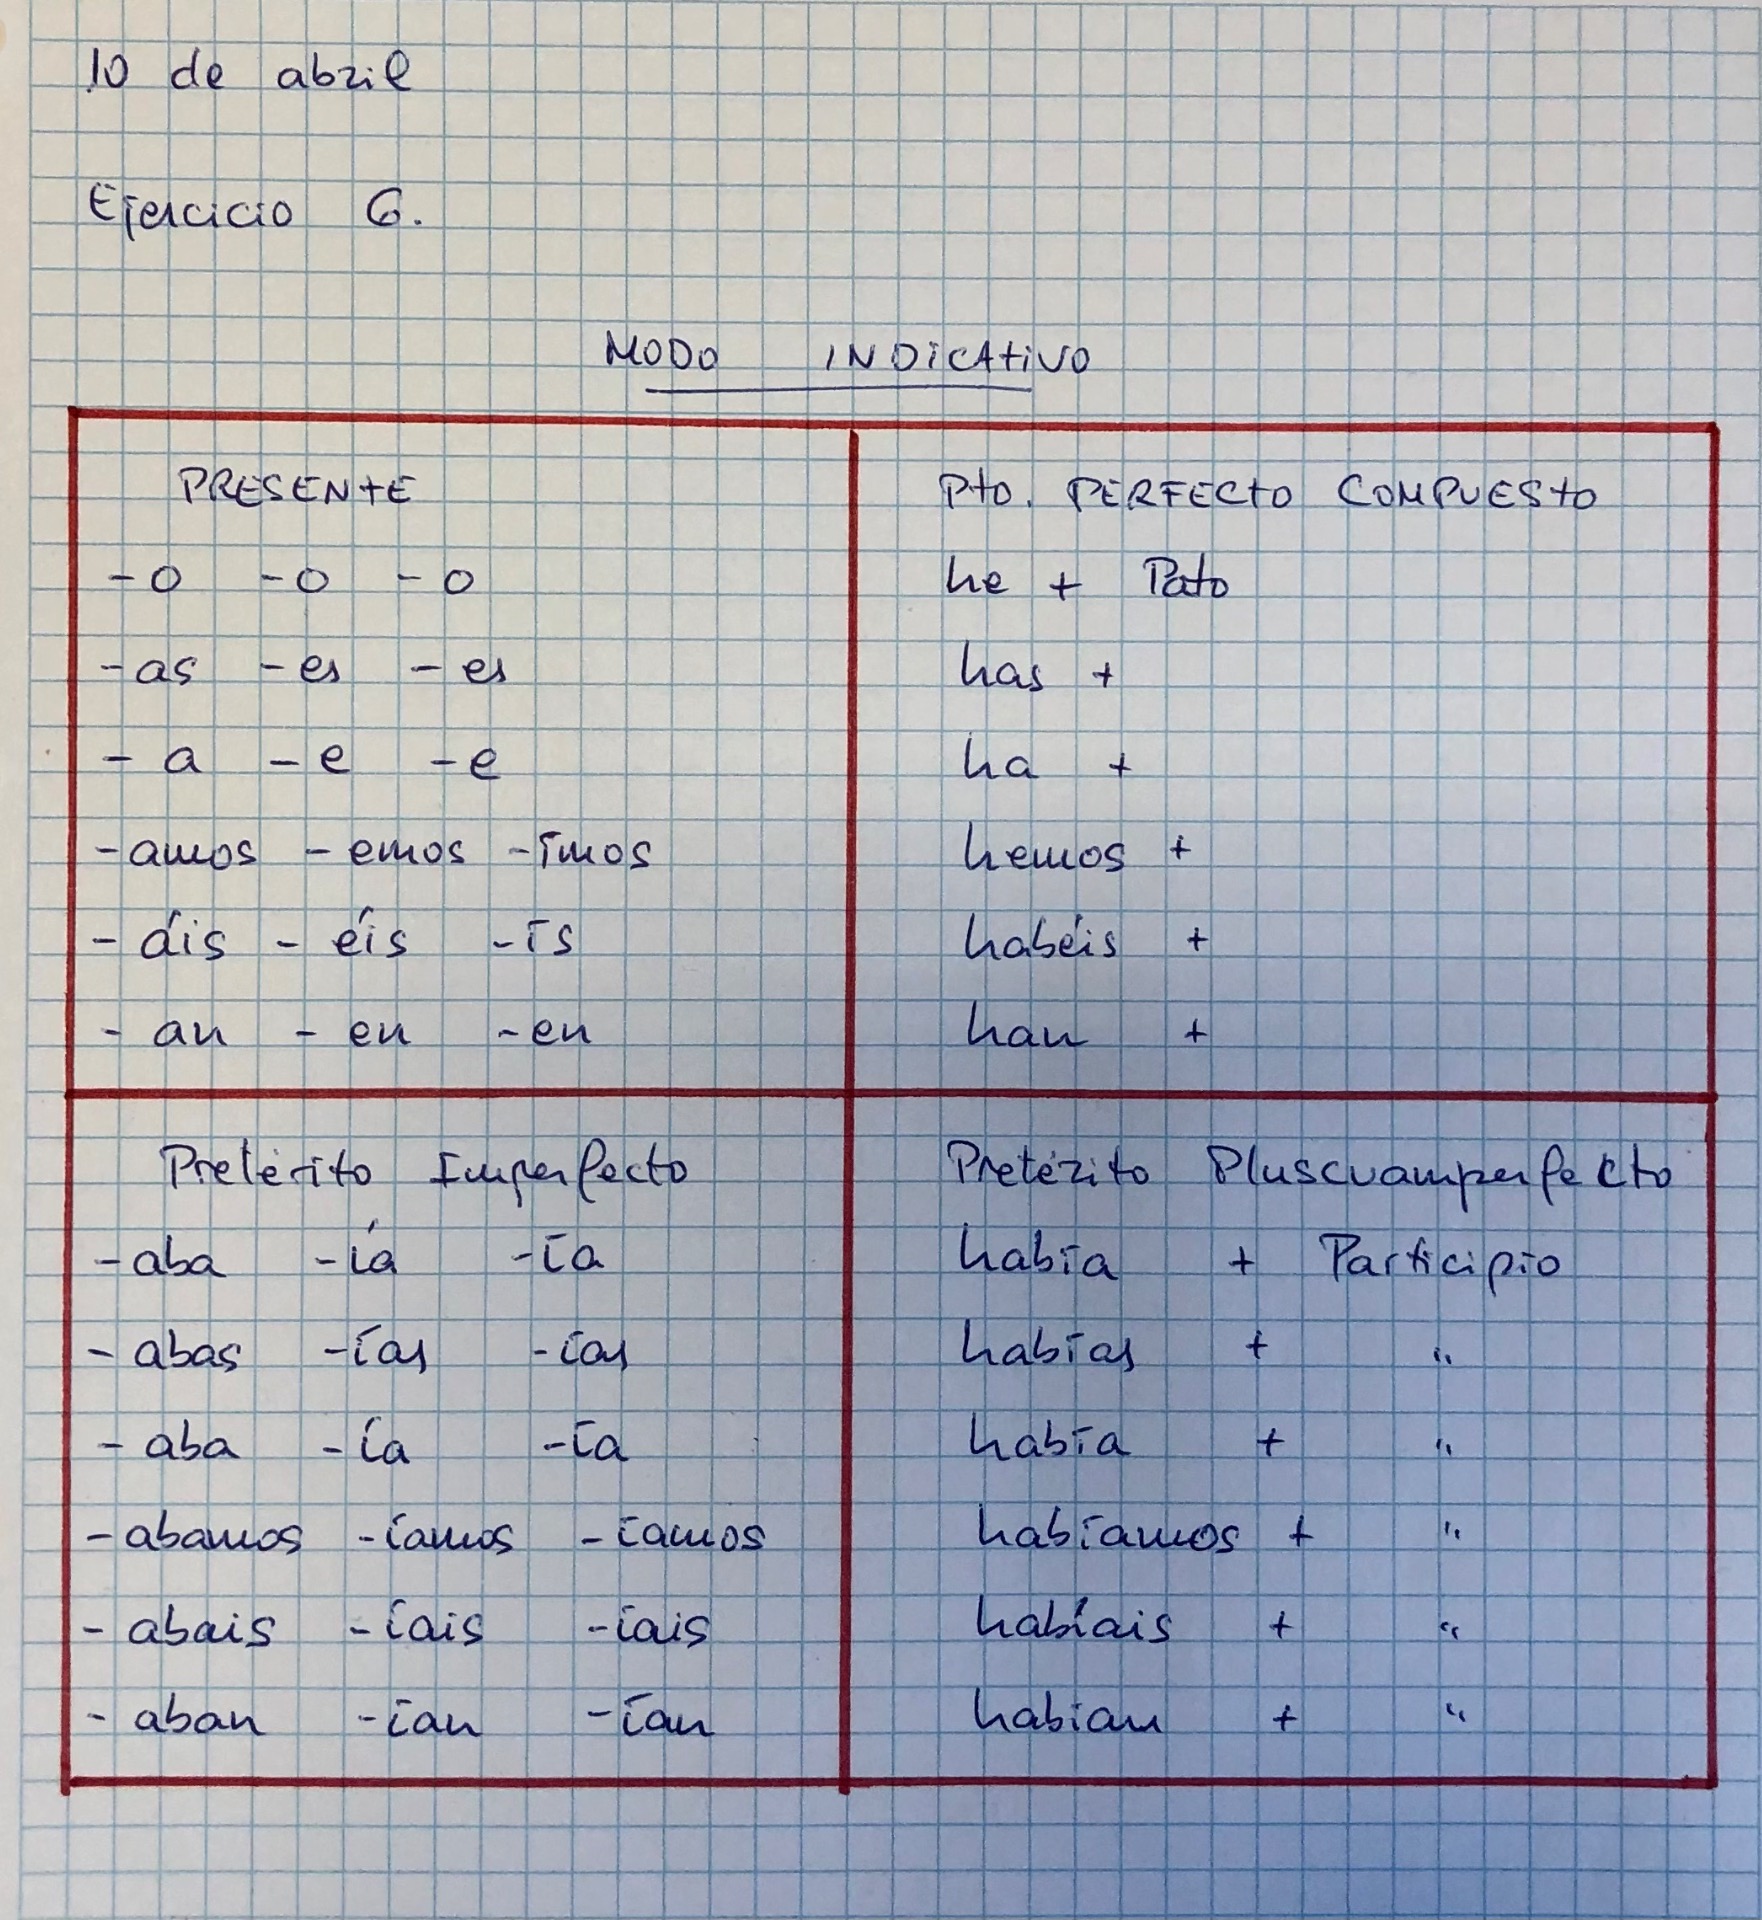 10 de abril
Ejercicio 6.
MODO INDICATIVO
PRESENTE
-o -o -o
-as -es -es
-a -e -e
-amos -emos -imos
-áis -éis -ís
-an -en -en
Pto. PERFECTO COMPUESTO
he + Pato
has +
ha +
hemos +
habéis +
han +
Pretérito Imperfecto
-aba -ía -ía
-abas -ías -ías
-aba -ía -ía
-abamos -íamos -íamos
-abais -íais -íais
-aban -ían -ían
Pretérito Pluscuamperfecto
había + Participio
habías + "
había + "
habíamos + "
habíais + "
habían + "